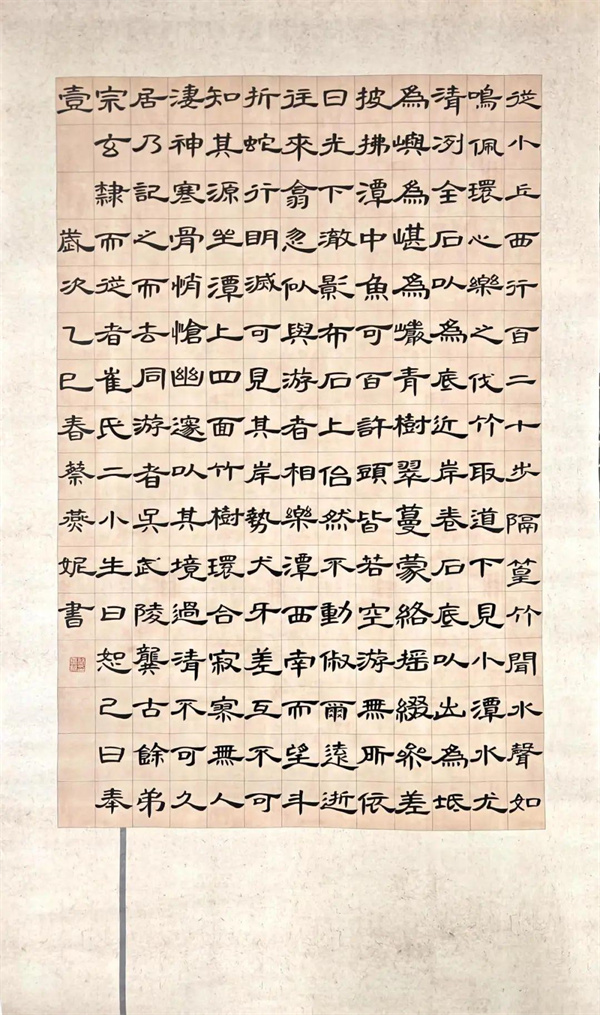 從小丘西行百二十步隔篁竹聞水聲如
鳴佩環心樂之伐竹取道下見小潭水尤
清冽全石以為底近岸卷石底以出為坻
為嶼為嵁為巖青樹翠蔓蒙絡摇綴參差
披拂潭中魚可百許頭皆若空游無所依
日光下澈影布石上佁然不動俶爾遠逝
往來翕忽似與游者相樂潭西南而望斗
折蛇行明滅可見其岸勢犬牙差互不可
知其源坐潭上四面竹樹環合寂寥無人
淒神寒骨悄愴幽邃以其境過清不可久
居乃記之而去同游者吳武陵龔古餘弟
宗玄隸而從者崔氏二小生曰恕己曰奉
壹 歲次乙巳春蔡燕妮書